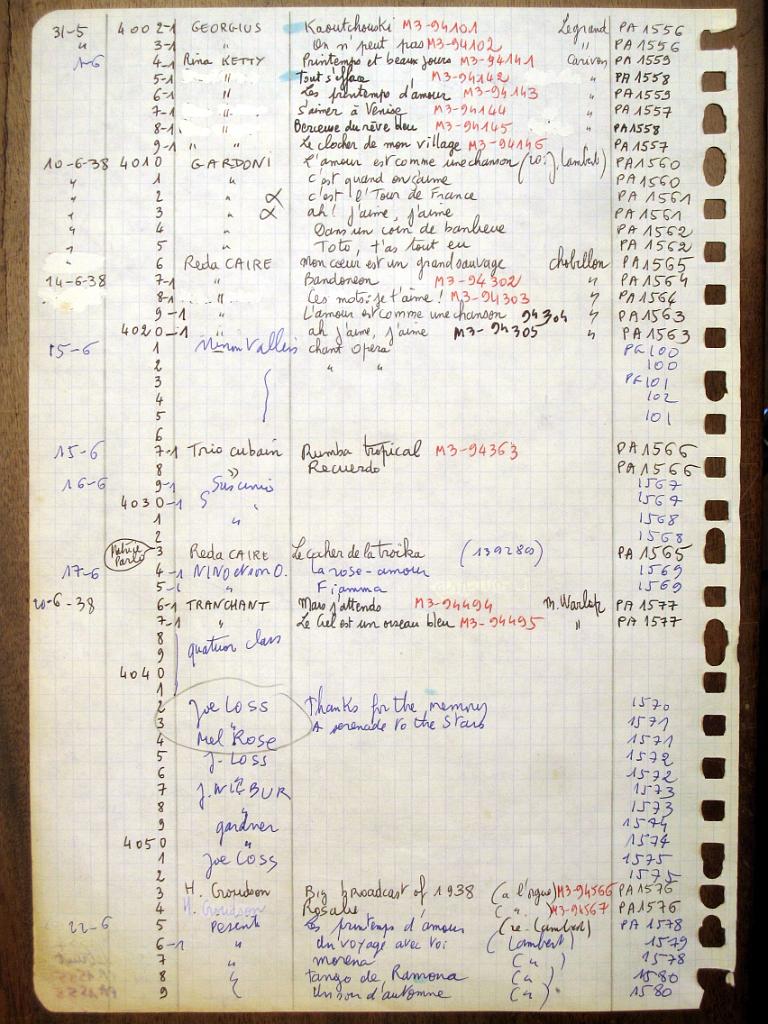 31-5 4002-1 GEORGIUS Kaoutchouski M3-94101 Legrand PA 1556
" 3-1 " On n' peut pas M3-94102 " PA 1556
1-6 4-1 Rina KETTY Printemps et beaux jours M3-94141 Cariven PA 1559
5-1 " Tout s'efface M3-94142 " PA 1558
6-1 " Les printemps d'amour M3-94143 " PA 1559
7-1 " S'aimer à Venise M3-94144 " PA 1557
8-1 " Berceuse du rêve bleu M3-94145 " PA 1558
9-1 " " Le clocher de mon village M3-94146 " PA 1557
10-6-38 4010 GARDONI L'amour est comme une chanson (ro: J. Lambert) PA 1560
" 1 " c'est quand on s'aime PA 1560
" 2 " α c'est l' Tour de France PA 1561
" 3 " α ah! j'aime, j'aime PA 1561
" 4 " Dans un coin de banlieue PA 1562
" 5 " Toto, t'as tout eu PA 1562
6 Reda CAIRE Mon cœur est un grand sauvage chobillon PA 1565
14-6-38 7-1 " Bandoneon M3-94302 " PA 1564
8-1 " Ces mots: je t'aime! M3-94303 " PA 1564
9-1 " L'amour est comme une chanson 94304 " PA 1563
4020-1 " ah j'aime, j'aime M3-94305 " PA 1563
15-6 1 Ninon Vallin chant Opera PG 100
2 " " 100
3 PG 101
4 102
5 101
6
15-6 7-1 Trio cubain Rumba tropical M3-94363 PA 1566
8 " Recuerdo PA 1566
16-6 9-1 Suscinio 1567
4030-1 " 1567
1 " 1568
2 1568
3 Reda CAIRE Le cocher de la troïka (1392800) PA 1565
17-6 4-1 NINO et son O. La rose-amour 1569
5-1 " Fiamma 1569
20-6-38 6-1 TRANCHANT Mais j'attends M3-94494 M. Warlop PA 1577
7-1 " Le Ciel est un oiseau bleu M3-94495 " PA 1577
8 quatuor class
9
4040
1
2 Joe LOSS Thanks for the memory 1570
3 " A serenade to the Stars 1571
4 Mel ROSE 1571
5 J. LOSS 1572
6 " 1572
7 J. WILBUR 1573
8 " 1573
9 gardner 1574
4050 " 1574
1 Joe LOSS 1575
2 1575
3 H. Croudson Big broadcast of 1938 (a l'orgue) M3-94566 PA 1576
4 H. Croudson Rosalie ( " ) M3-94567 PA 1576
22-6 5 Pesenti Les printemps d'amour (re-Lambert) PA 1578
6-1 " Un voyage avec toi (Lambert) 1579
7 " morena ( " ) 1578
8 " tango de Ramona ( " ) 1580
9 Un soir d'automne ( " ) 1580